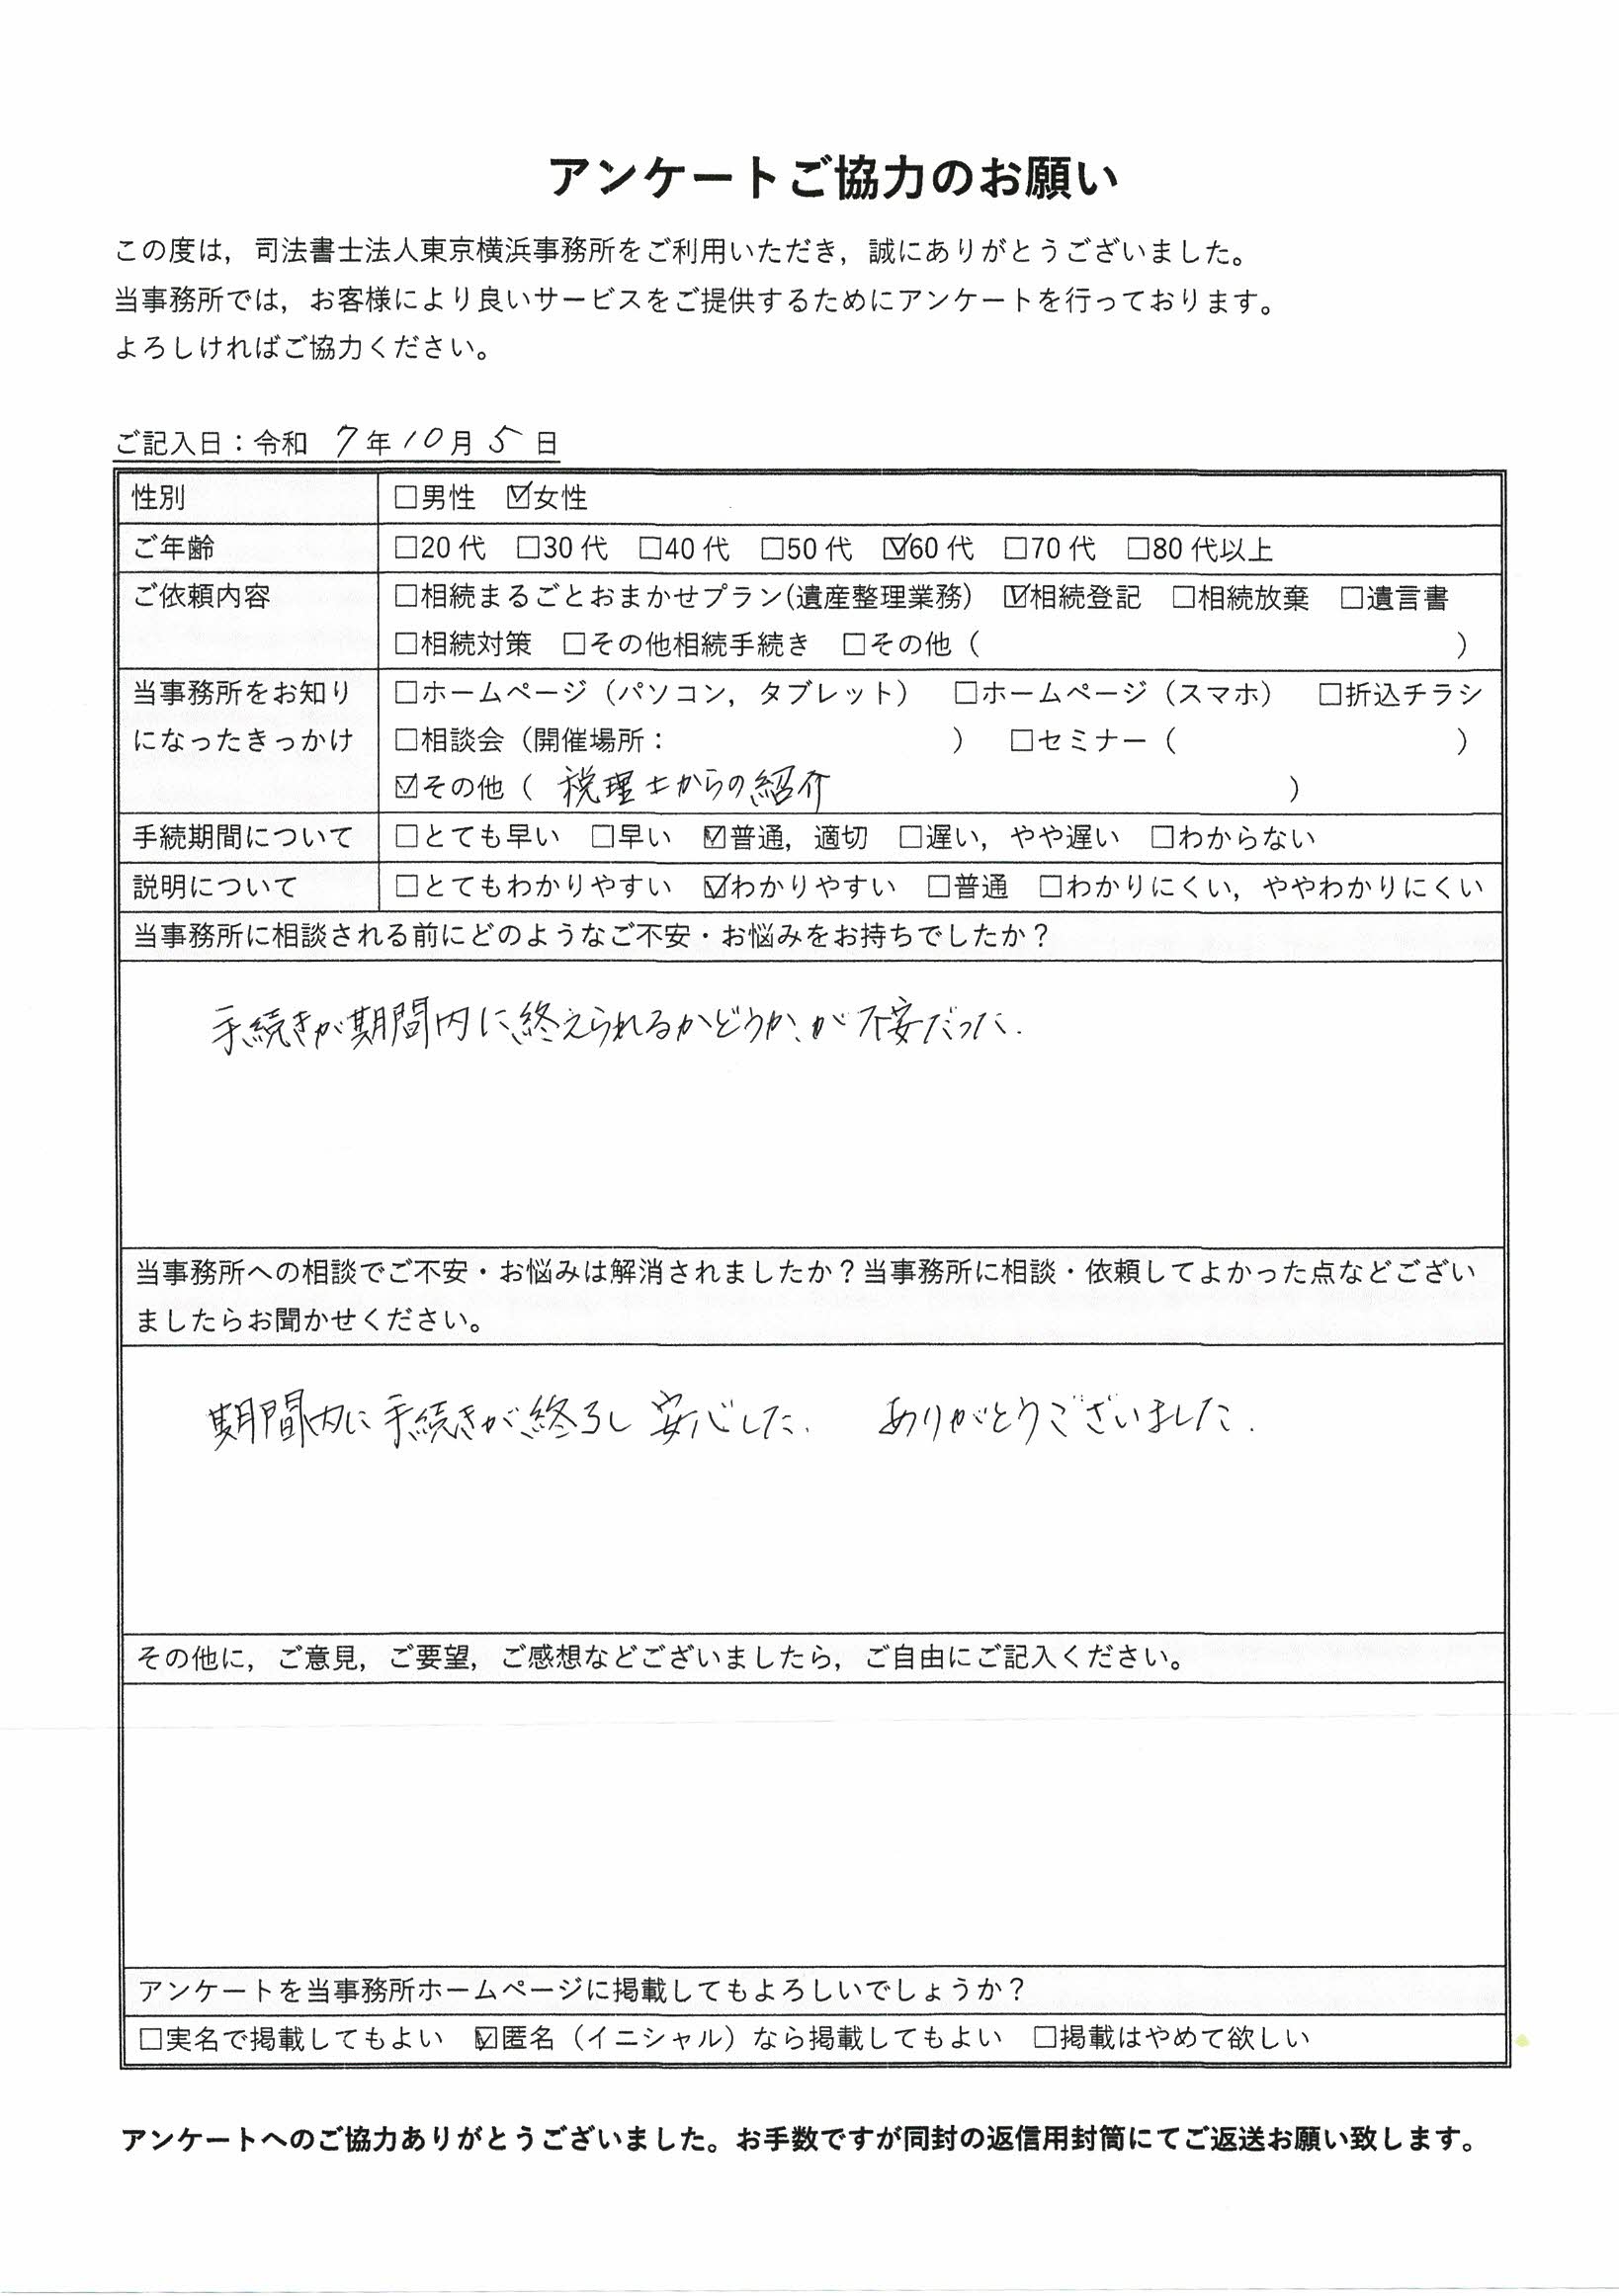 アンケートご協力のお願い
この度は，司法書士法人東京横浜事務所をご利用いただき，誠にありがとうございました。
当事務所では，お客様により良いサービスをご提供するためにアンケートを行っております。
よろしければご協力ください。
ご記入日：令和 7年10月5日
性別 □男性 ☑女性
ご年齢 □20代 □30代 □40代 □50代 ☑60代 □70代 □80代以上
ご依頼内容 □相続まるごとおまかせプラン(遺産整理業務) ☑相続登記 □相続放棄 □遺言書
□相続対策 □その他相続手続き □その他（ ）
当事務所をお知り □ホームページ（パソコン，タブレット） □ホームページ（スマホ） □折込チラシ
になったきっかけ □相談会（開催場所： ） □セミナー（ ）
☑その他（ 税理士からの紹介 ）
手続期間について □とても早い □早い ☑普通，適切 □遅い，やや遅い □わからない
説明について □とてもわかりやすい ☑わかりやすい □普通 □わかりにくい，ややわかりにくい
当事務所に相談される前にどのようなご不安・お悩みをお持ちでしたか？
手続きが期間内に終えられるかどうか、が不安だった.
当事務所への相談でご不安・お悩みは解消されましたか？当事務所に相談・依頼してよかった点などござい
ましたらお聞かせください。
期間内に手続きが終了し安心した. ありがとうございました.
その他に，ご意見，ご要望，ご感想などございましたら，ご自由にご記入ください。
アンケートを当事務所ホームページに掲載してもよろしいでしょうか？
□実名で掲載してもよい ☑匿名（イニシャル）なら掲載してもよい □掲載はやめて欲しい
アンケートへのご協力ありがとうございました。お手数ですが同封の返信用封筒にてご返送お願い致します。